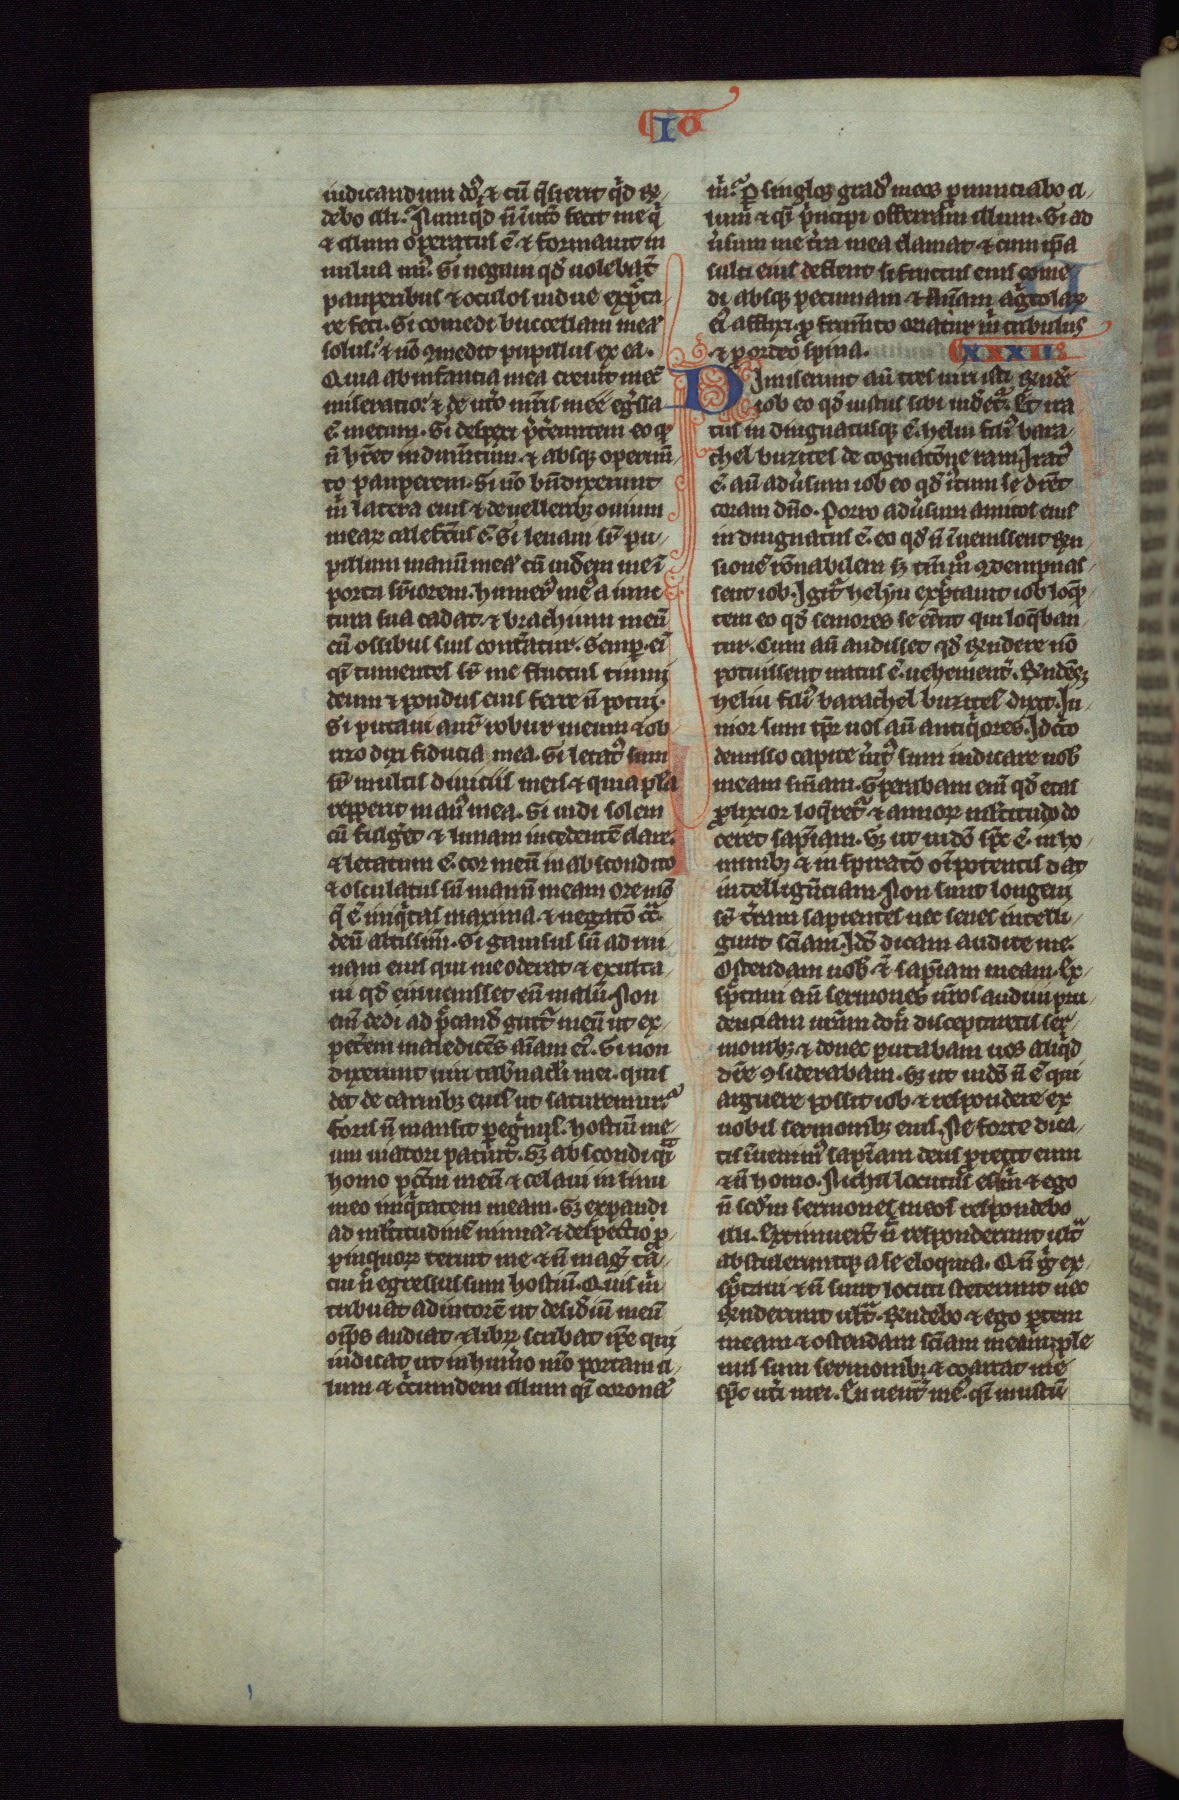 IO
iudicandum ds̄ & cū q̄sierit qͥd rn̄
debo illi. Numqͥd n̄ ī utͦo fecit me qͥ
& illum operatus ē & formauit in
uulua m̄. Si negaui qd̄ uolebāt
pauperibus & oculos uidue exp̄cta
re feci. Si comedi buccellam meā
solus & nō ꝯmedit pupillus ex ea.
Quia ab infantia mea creuit mec̄
miseratio & de utͦo mr̄is mee eḡssa
ē mecum. Si despexi p̄t̄euntem eo qͦ
n̄ hr̄et indum̄tum & absqꝫ operim̄
to pauperem. Si nō bn̄dixerunt
m̄ latera eius & de uelleribꝫ ouium
meaꝝ calefc̄us ē. Si leuaui sr̄ pu
pillum manū meā cū uidēm me ī
porta sup̄iorem. humerꝰ meꝰ a iunc
tura sua cadat & brachium meū
cū ossibus suis conf̄atur. Semp̄ eī
qͣ tumentes sr̄ me fluctus timui
deum & pondus eius ferre n̄ potui.
Si putaui aur̄ robur meum & ob
rizo dixi fiducia mea. Si letatꝰ sum
sr̄ multis diuiciis meis & quia pl̄a
repperit manꝰ mea. Si uidi solem
cū fulḡet & lunam incedentē clare.
& letatum ē cor meū in abscondito
& osculatus sū manū meam ore meo
q̄ ē iniqͥtas maxima & negatō cͣ
deū altissim̄. Si gauisus sū ad rui
nam eius qui me oderat & exulta
ui qd̄ euenisset eū malū. Non
enī dedi ad p̄cand̄ gutt̄ meū ut ex
pet̄em maledicēs aīam eiꝰ. Si non
dixerunt uiri tab̄naculi mei. quis
det de carnibꝫ eius ut saturemur.
foris n̄ mansit pegͥnus. hostiū me
um uiatori patuit. Si abscondi qͣ
homo pctm̄ meū & celaui in sinu
meo iniqͥtatem meam. Si expaui
ad multitudinē nimiā & despectio ꝓ
pinquoꝝ terruit me & n̄ magꝭ ta
cui n̄ egressus sum hostiū. Quis m̄
tribuat auditorē ut desid̄iū meū
om̄ps audiat & librū scribat ip̄e qui
iudicat ut in humͦo mō portem il
lum & cͥcumdem illum qͣ coronā
m̄. Per singlos gradꝰ meos pronunciabo il
lum & qͣ pͥncipi offeram illum. Si ad
ūsum me tr̄a mea clamat & cum ip̄a
sulci eius deflent si fructus eius come
di absqꝫ pecuniam & aīam agͥcolaꝝ
eiꝰ afflixi. ꝓ frum̄to oriatur m̄ tribulus
& ꝓ ordeo spina. XXXII
Dimiserunt aū tres uiri isti rn̄dē
iob eo qd̄ iustus sibi uid̄et̄. Et ira
tus indignatusqꝫ ē heliu filiꝰ bara
chel buzites de cognatōne ram. Iratꝰ
ē aū adūsum iob eo qd̄ iustum se dic̄et
coram dn̄o. Porro adūsum amicos eius
indignatus ē eo qd̄ n̄ inuenissent rn̄
sionē rōnabilem sꝫ tm̄mͦ ꝯdempnas
sent iob. Igit̄ heliu expectauit iob loqͣ̄
tem eo qd̄ seniores se ēēnt qui loqͣban
tur. Cum aū audisset qd̄ rn̄dere nō
potuissent iratus ē uehement̄. Rn̄dēsqꝫ
heliu filiꝰ barachel buzites dixit. Iu
nior sum tꝑe uos aū antiqͥores. Idcͥco
demisso capite ūitꝰ sum indicare uob̄
meam sn̄iam. Sperabam enī qd̄ etas
ꝓlixior loq̄ret̄ & annoꝝ multitudo do
ceret sapīam. Sꝫ ut uideo sp̄c ē in ho
minibꝫ & inspiratō om̄ipotentis dat
intelligenciam. Non sunt longeui
sr̄ t̄ram sapientes nec senes intelli
gunt sc̄iam. Ideo dicam audite me.
Ostendam uob̄ & sapīam meam. Ex
spectaui enī sermones ur̄os audiui pru
denciam ur̄am don̄ disceptaretis ser
monibꝫ & donec putabam uos aliqͥd
dic̄e ꝯsiderabam. Sꝫ ut uideo n̄ ē qui
arguere possit iob & respondere ex
uobis sermonibꝫ eius. Ne forte dica
tis inuenimꝰ sapīam deus proiecit eum
& n̄ homo. Nichil locutus est m̄ & ego
n̄ scd̄m sermones meos respondebo
illi. Extimuert̄ n̄ responderunt ultͣ
abstuleruntqꝫ a se eloquia. Qn̄ gͦ ex
spectaui & n̄ sunt locuti steterunt nec
rn̄derunt ultͣ. Rn̄debo & ego partem
meam & ostendam sc̄iam meam. ple
nus sum sermonibꝫ & coartat me
sp̄c ut̄i mei. En uent̄ meꝰ qͣ mustū